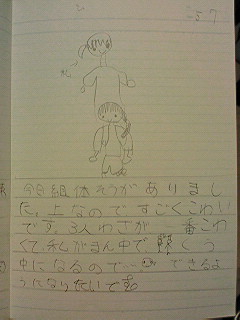 私
今日組体そうがありまし
た。上なのですごくこわい
です。3人わざが一番こわ
くて、私がまん中で くう
中になるので… できるよ
うになりたいです